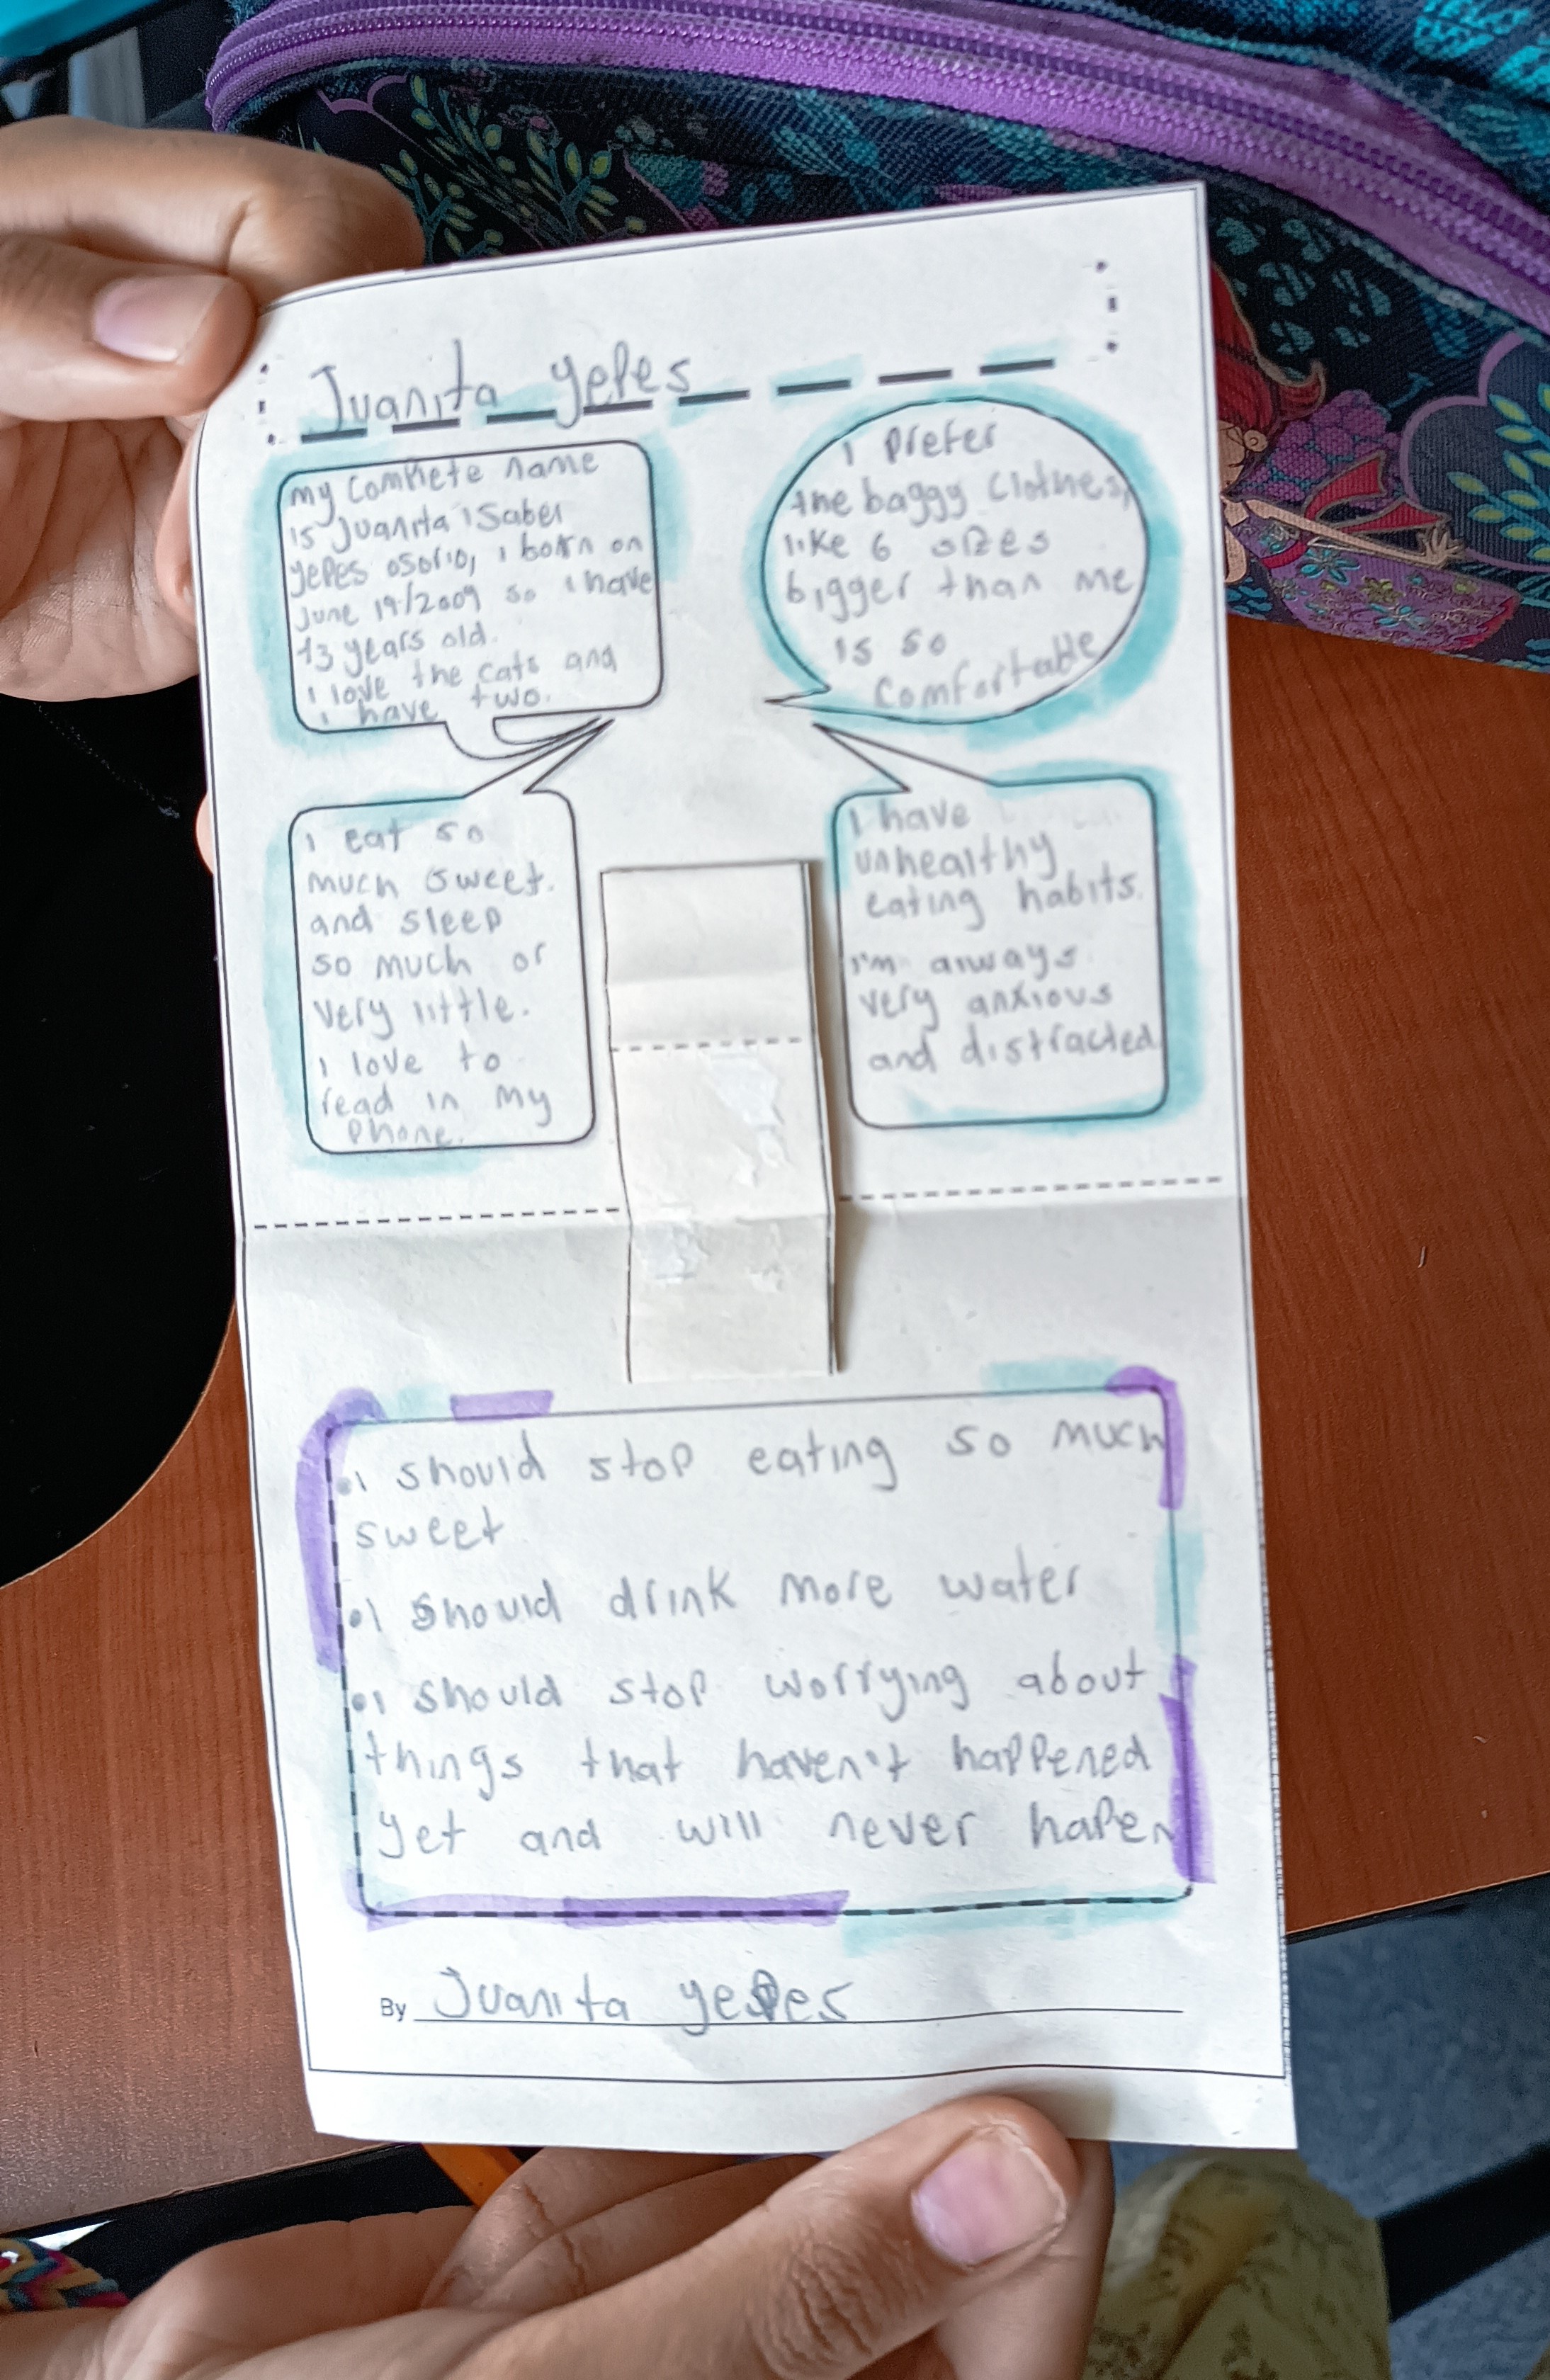 Juanita yepes
my complete name
is Juanita isabel
yepes osorio, i born on
June 19/2009 so i have
13 years old.
i love the cats and
i have two.
i prefer
the baggy clothes,
like 6 sizes
bigger than me
is so
comfortable
i eat so
much sweet.
and sleep
so much or
very little.
i love to
read in my
phone.
i have
unhealthy
eating habits.
i'm always
very anxious
and distracted
•i should stop eating so much
sweet
•i should drink more water
•i should stop worrying about
things that haven't happened
yet and will never hapen
By Juanita yepes